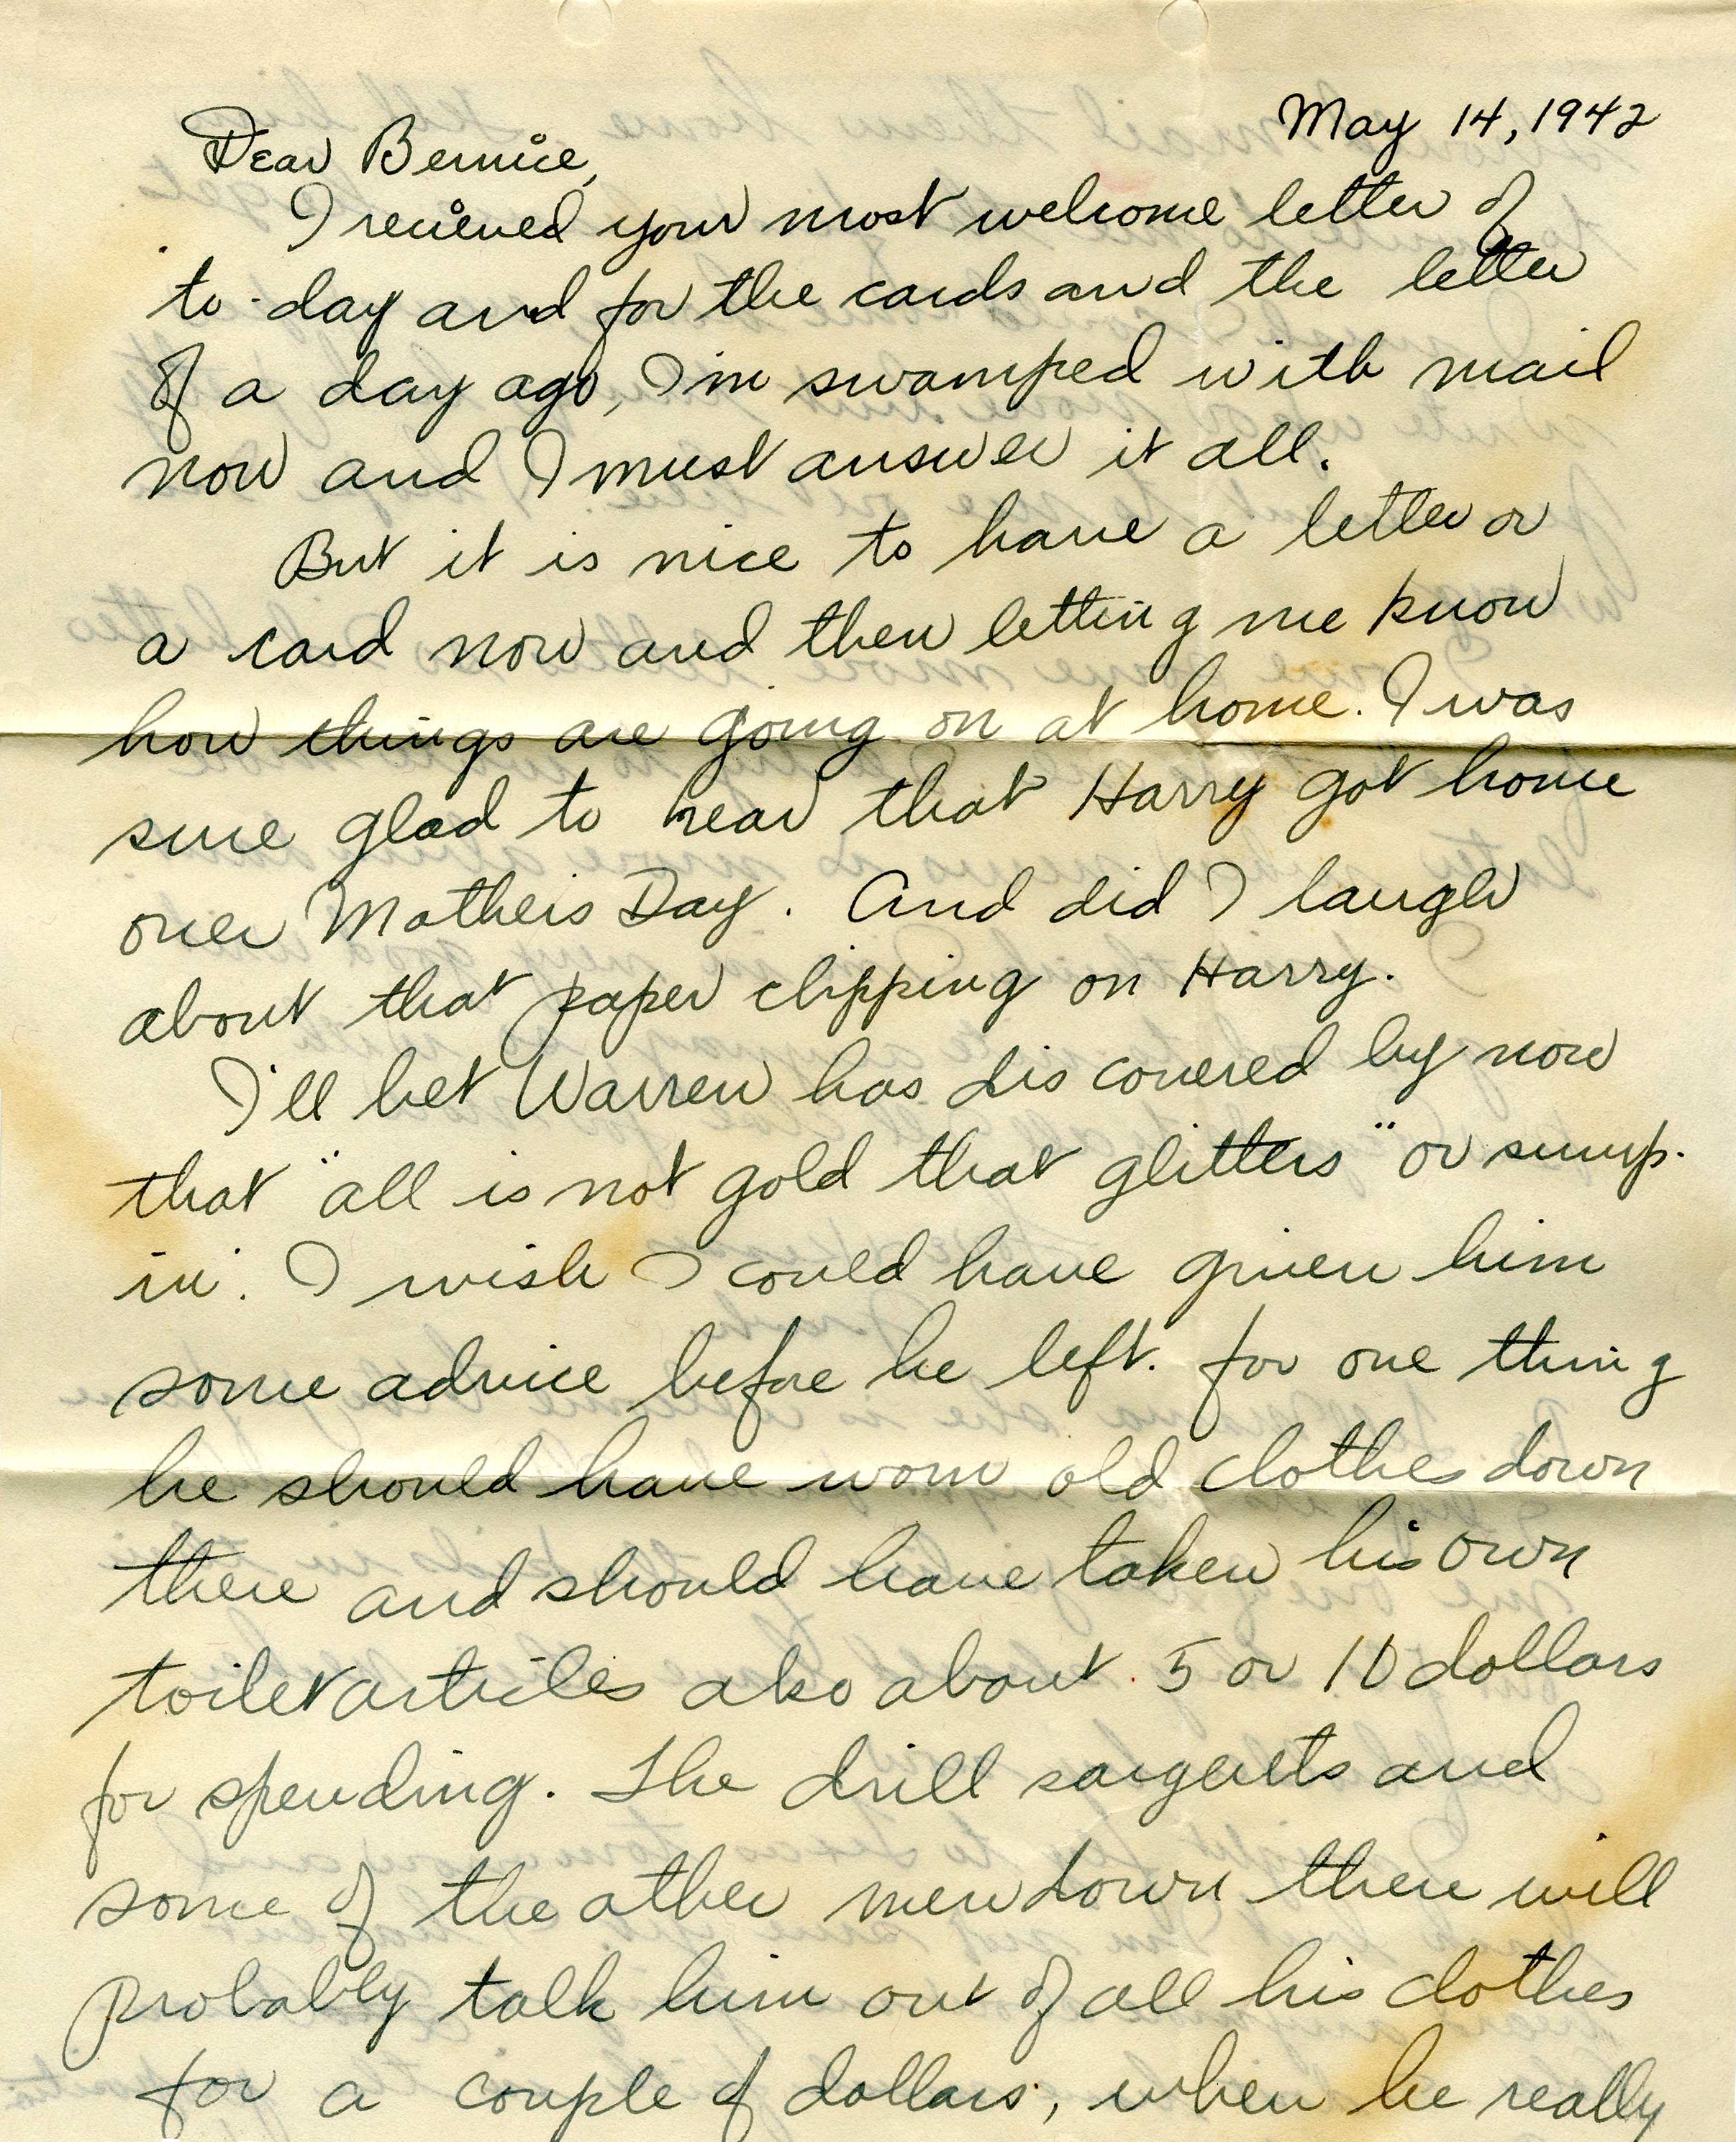 May 14, 1942
Dear Bernice,
I recieved your most welcome letter of
to-day and for the cards and the letter
of a day ago, I'm swamped with mail
now and I must answer it all.
But it is nice to have a letter or
a card now and then letting me know
how things are going on at home. I was
sure glad to hear that Harry got home
over Mothers Day. And did I laugh
about that paper clipping on Harry.
I'll bet Warren has discovered by now
that "all is not gold that glitters" or sump-
in'. I wish I could have given him
some advice before he left. for one thing
he should have worn old clothes down
there and should have taken his own
toilet articles also about 5 or 10 dollars
for spending. The drill sargents and
some of the other men down there will
probably talk him out of all his clothes
for a couple of dollars, when he really